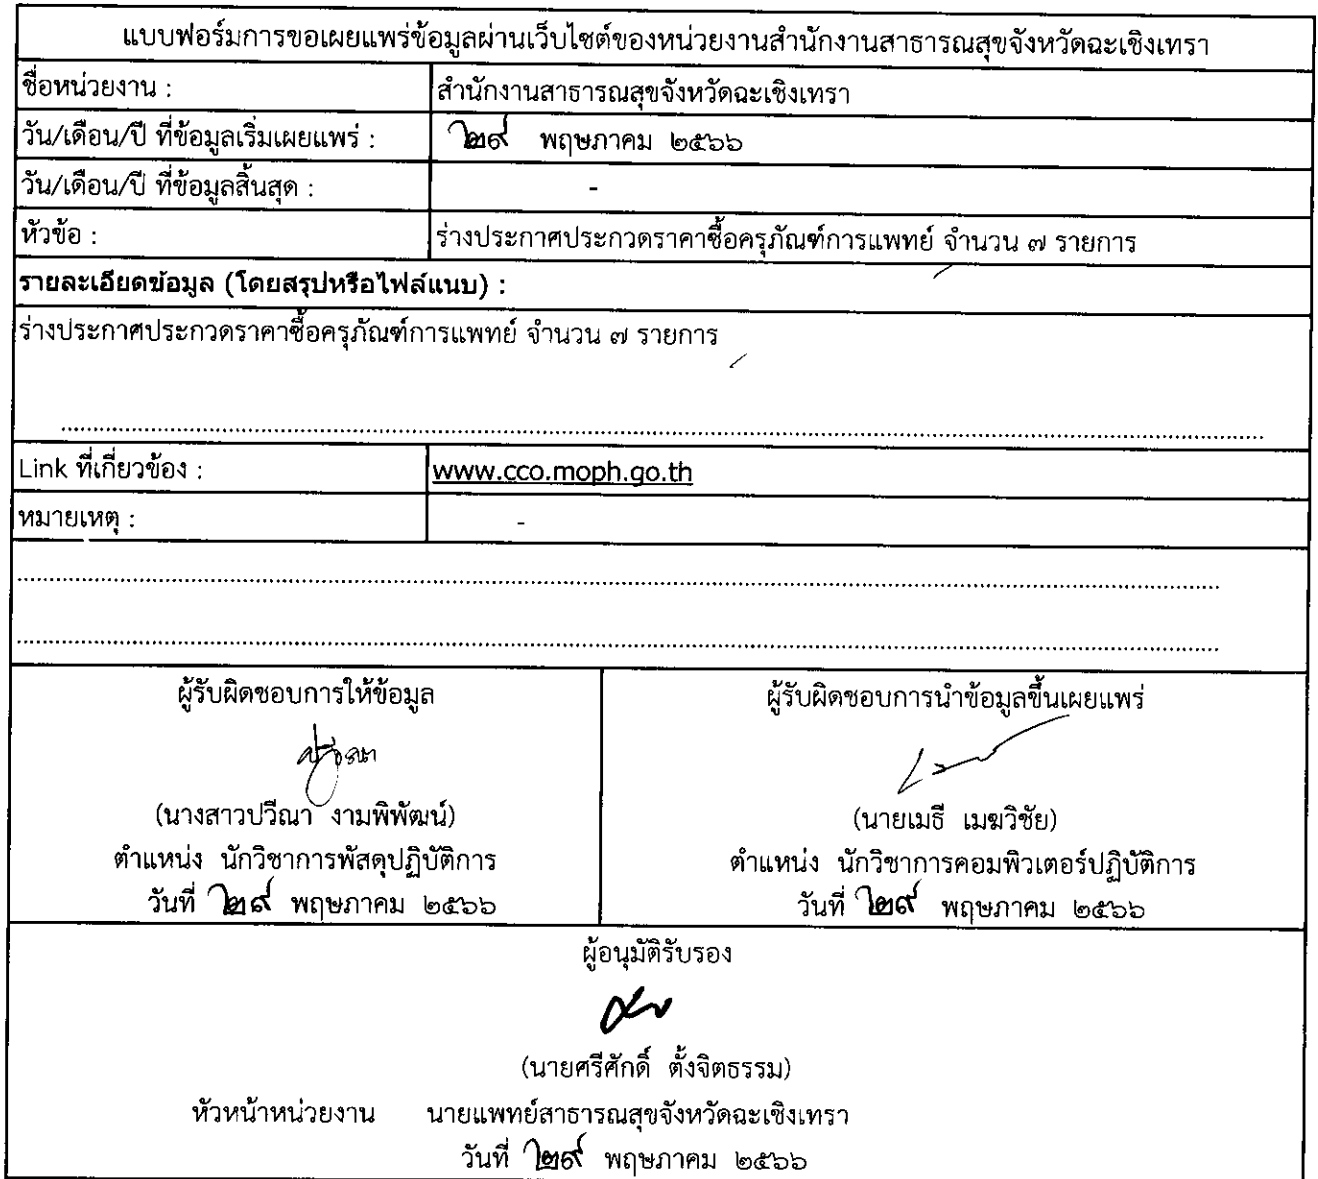 แบบฟอร์มการขอเผยแพร่ข้อมูลผ่านเว็บไซต์ของหน่วยงานสำนักงานสาธารณสุขจังหวัดฉะเชิงเทรา
ชื่อหน่วยงาน : สำนักงานสาธารณสุขจังหวัดฉะเชิงเทรา
วัน/เดือน/ปี ที่ข้อมูลเริ่มเผยแพร่ : ๒๙ พฤษภาคม ๒๕๖๖
วัน/เดือน/ปี ที่ข้อมูลสิ้นสุด : -
หัวข้อ : ร่างประกาศประกวดราคาซื้อครุภัณฑ์การแพทย์ จำนวน ๗ รายการ
รายละเอียดข้อมูล (โดยสรุปหรือไฟล์แนบ) :
ร่างประกาศประกวดราคาซื้อครุภัณฑ์การแพทย์ จำนวน ๗ รายการ
Link ที่เกี่ยวข้อง : www.cco.moph.go.th
หมายเหตุ : -
ผู้รับผิดชอบการให้ข้อมูล
ปวีณา
(นางสาวปวีณา งามพิพัฒน์)
ตำแหน่ง นักวิชาการพัสดุปฏิบัติการ
วันที่ ๒๙ พฤษภาคม ๒๕๖๖
ผู้รับผิดชอบการนำข้อมูลขึ้นเผยแพร่
(นายเมธี เมฆวิชัย)
ตำแหน่ง นักวิชาการคอมพิวเตอร์ปฏิบัติการ
วันที่ ๒๙ พฤษภาคม ๒๕๖๖
ผู้อนุมัติรับรอง
(นายศรีศักดิ์ ตั้งจิตธรรม)
หัวหน้าหน่วยงาน นายแพทย์สาธารณสุขจังหวัดฉะเชิงเทรา
วันที่ ๒๙ พฤษภาคม ๒๕๖๖